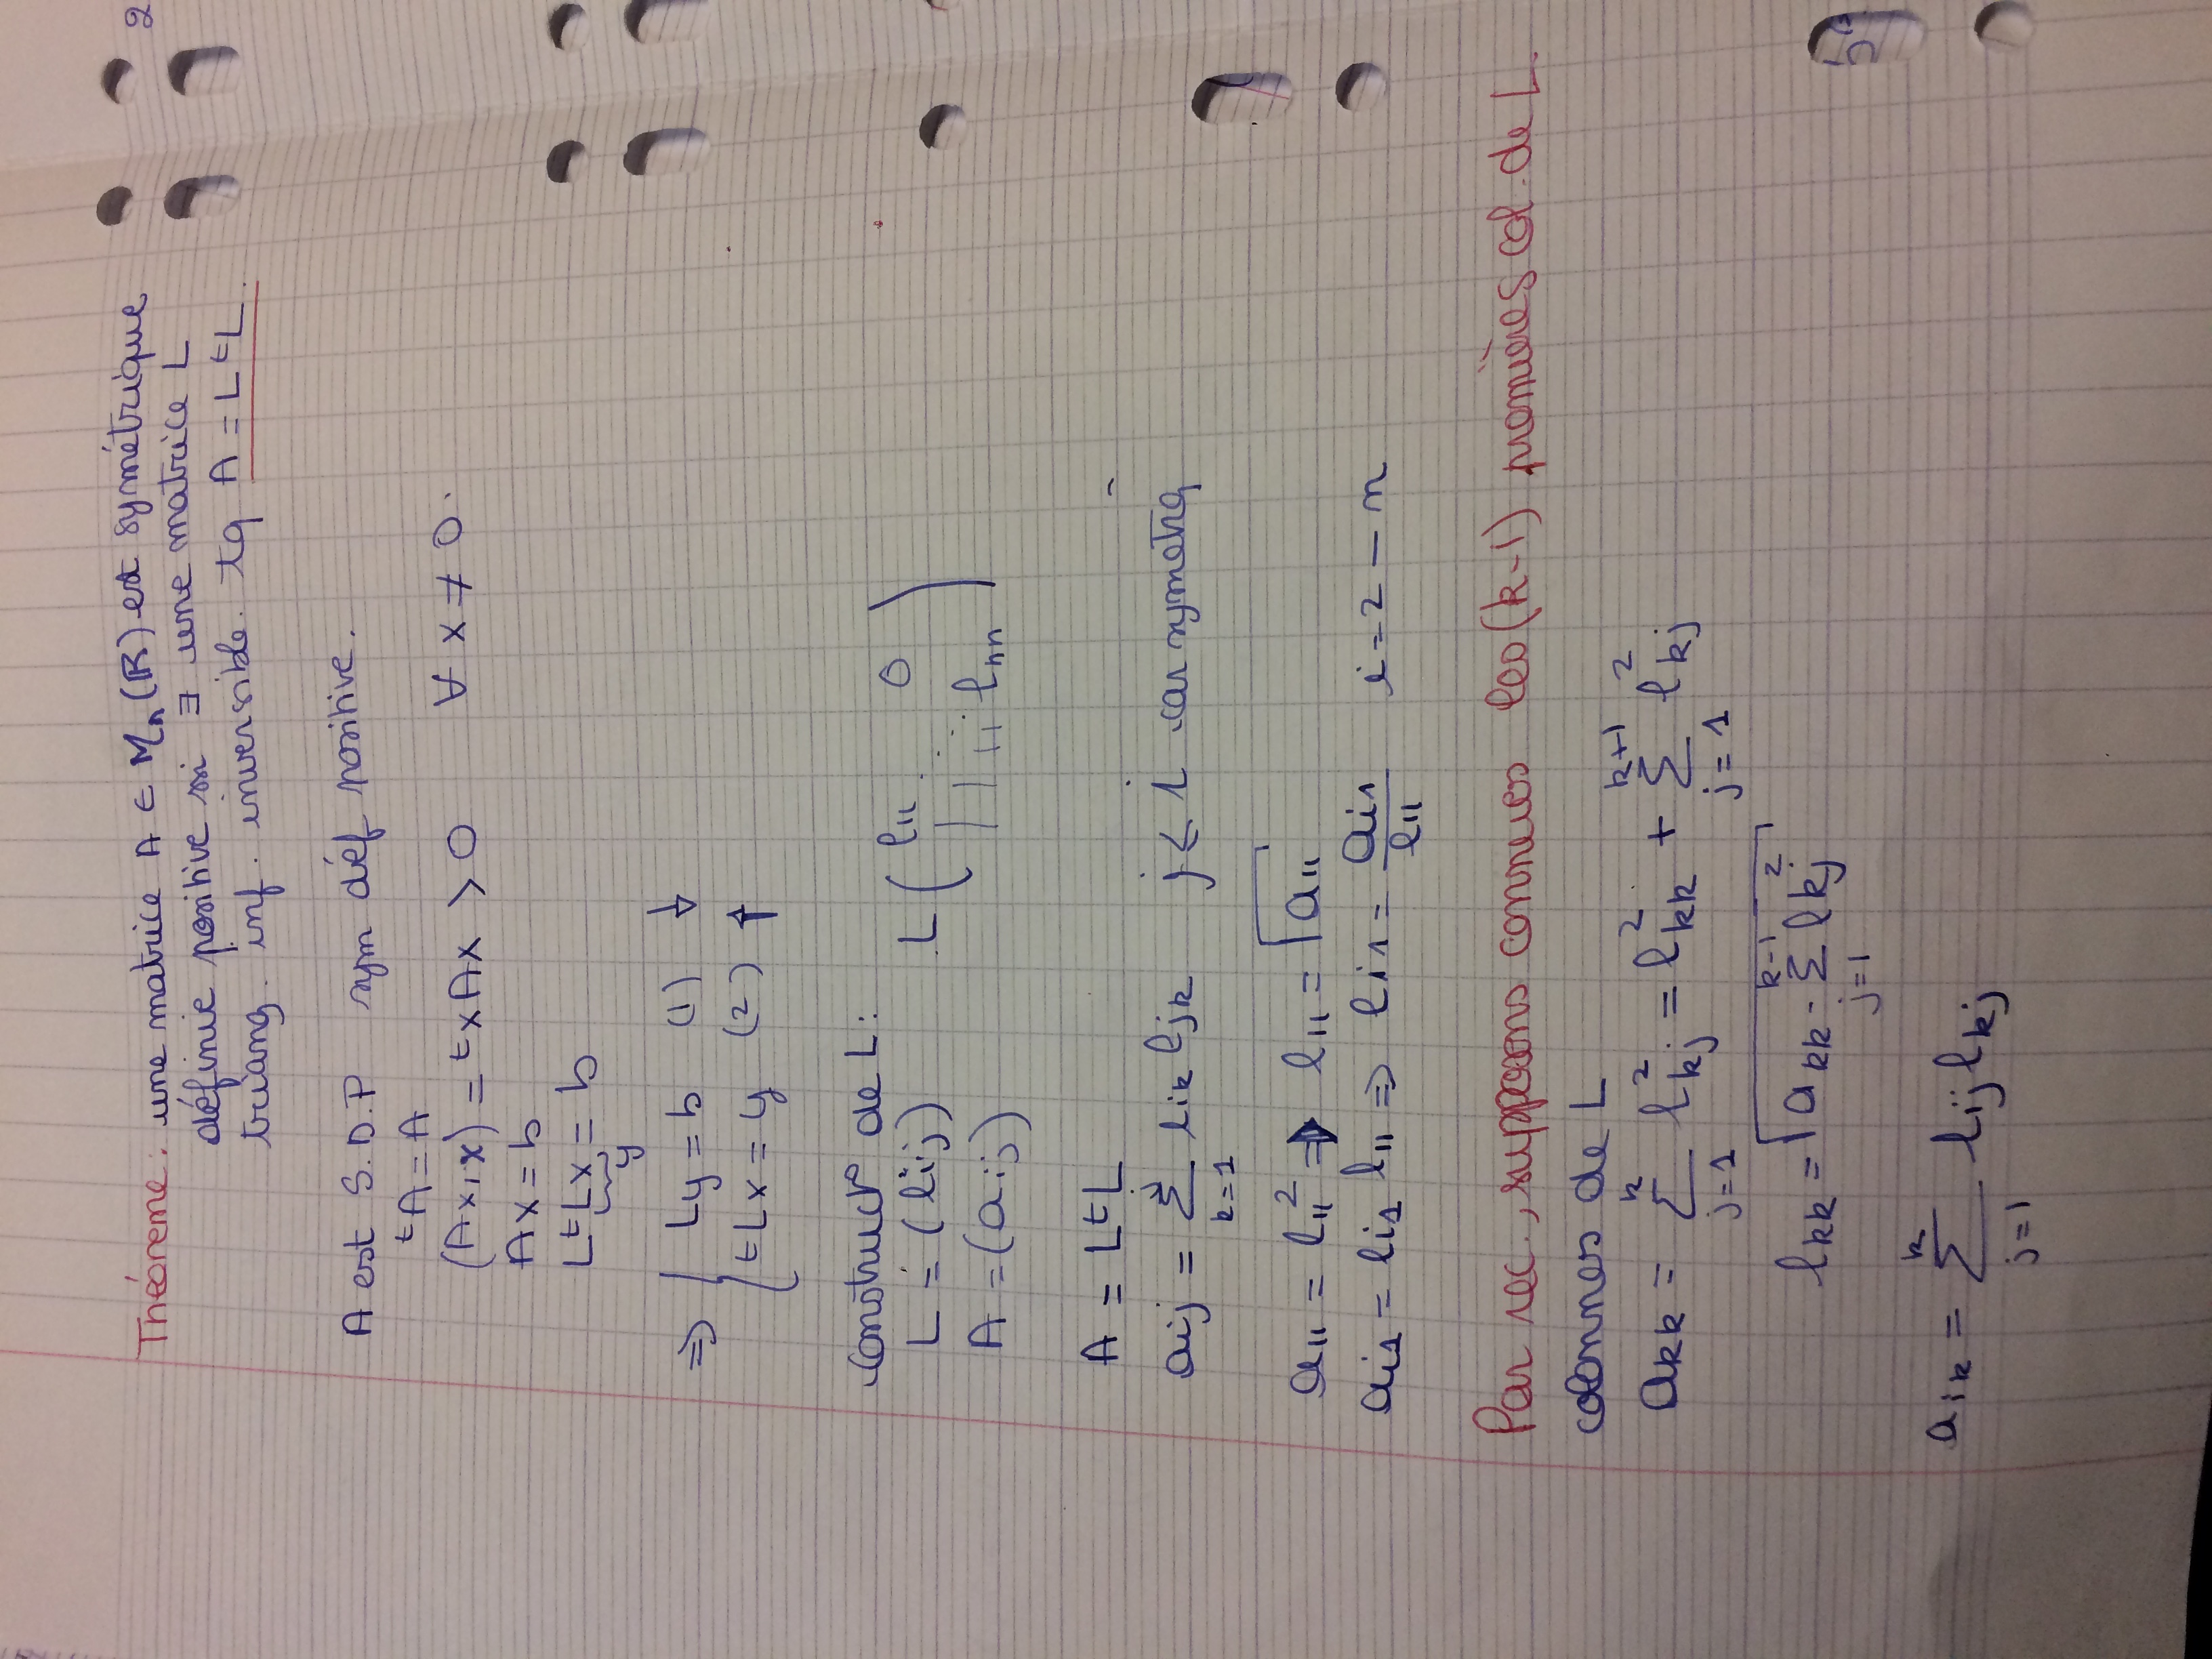 Théoreme : une matrice A ∈ Mn(R) est symétrique
2
définie positive ssi ∃ une matrice L
triang. inf. inversible. tq A = L ᵗL.
A est S.D.P sym déf positive.
ᵗA = A
(Ax, x) = ᵗxAx > 0 ∀ x ≠ 0.
Ax = b
L ᵗLx = b
y
⇒ { Ly = b (1) ↓
ᵗLx = y (2) ↑
construct° de L :
L = (lij) L ( l11 0
A = (aij) lnn )
A = L ᵗL
aij = Σ_{k=1}^{j} lik ljk j ≤ i car symétrq
a11 = l11² ⇒ l11 = √a11
ai1 = li1 l11 ⇒ li1 = ai1 / l11 i = 2 – n
Par rec., supposons connues les (k-1) premières col. de L.
colonnes de L
akk = Σ_{j=1}^{k} l²kj = l²kk + Σ_{j=1}^{k+1} l²kj
lkk = √(akk - Σ_{j=1}^{k-1} lkj²)
aik = Σ_{j=1}^{k} lij lkj